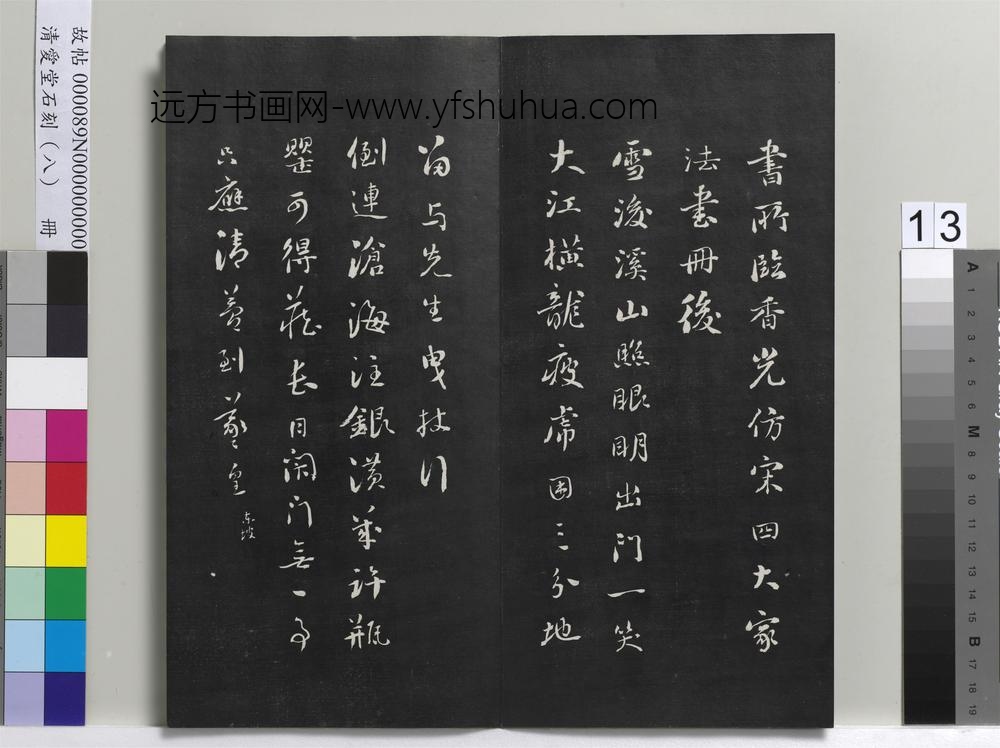 远方书画网-www.yfshuhua.com
故帖 000089N000000000
清愛堂石刻(八) 冊
書所臨香光仿宋四大家
法書冊後
雪後溪山照眼明出門一笑
大江橫龍疲虎困三分地
留与先生曳杖行
倒連滄海注銀潢幾許瓶
罌可得藏長日閑门無一事
只應清夢到羲皇 東坡
13
A 1 2 3 4 5 6 M 8 9 10 11 12 13 14 15 B 17 18 19